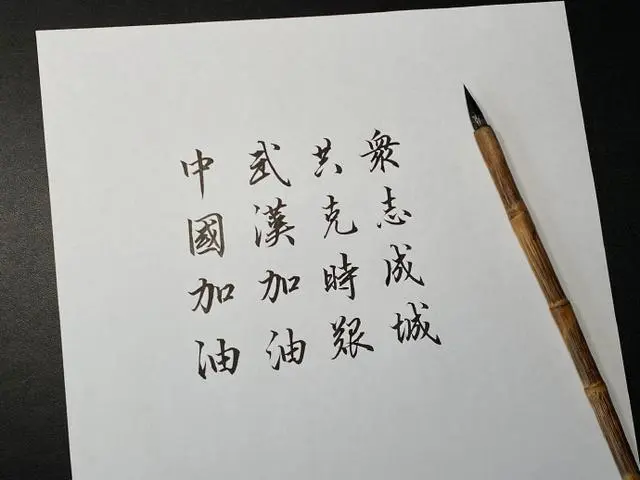 衆志成城
共克時艱
武漢加油
中國加油